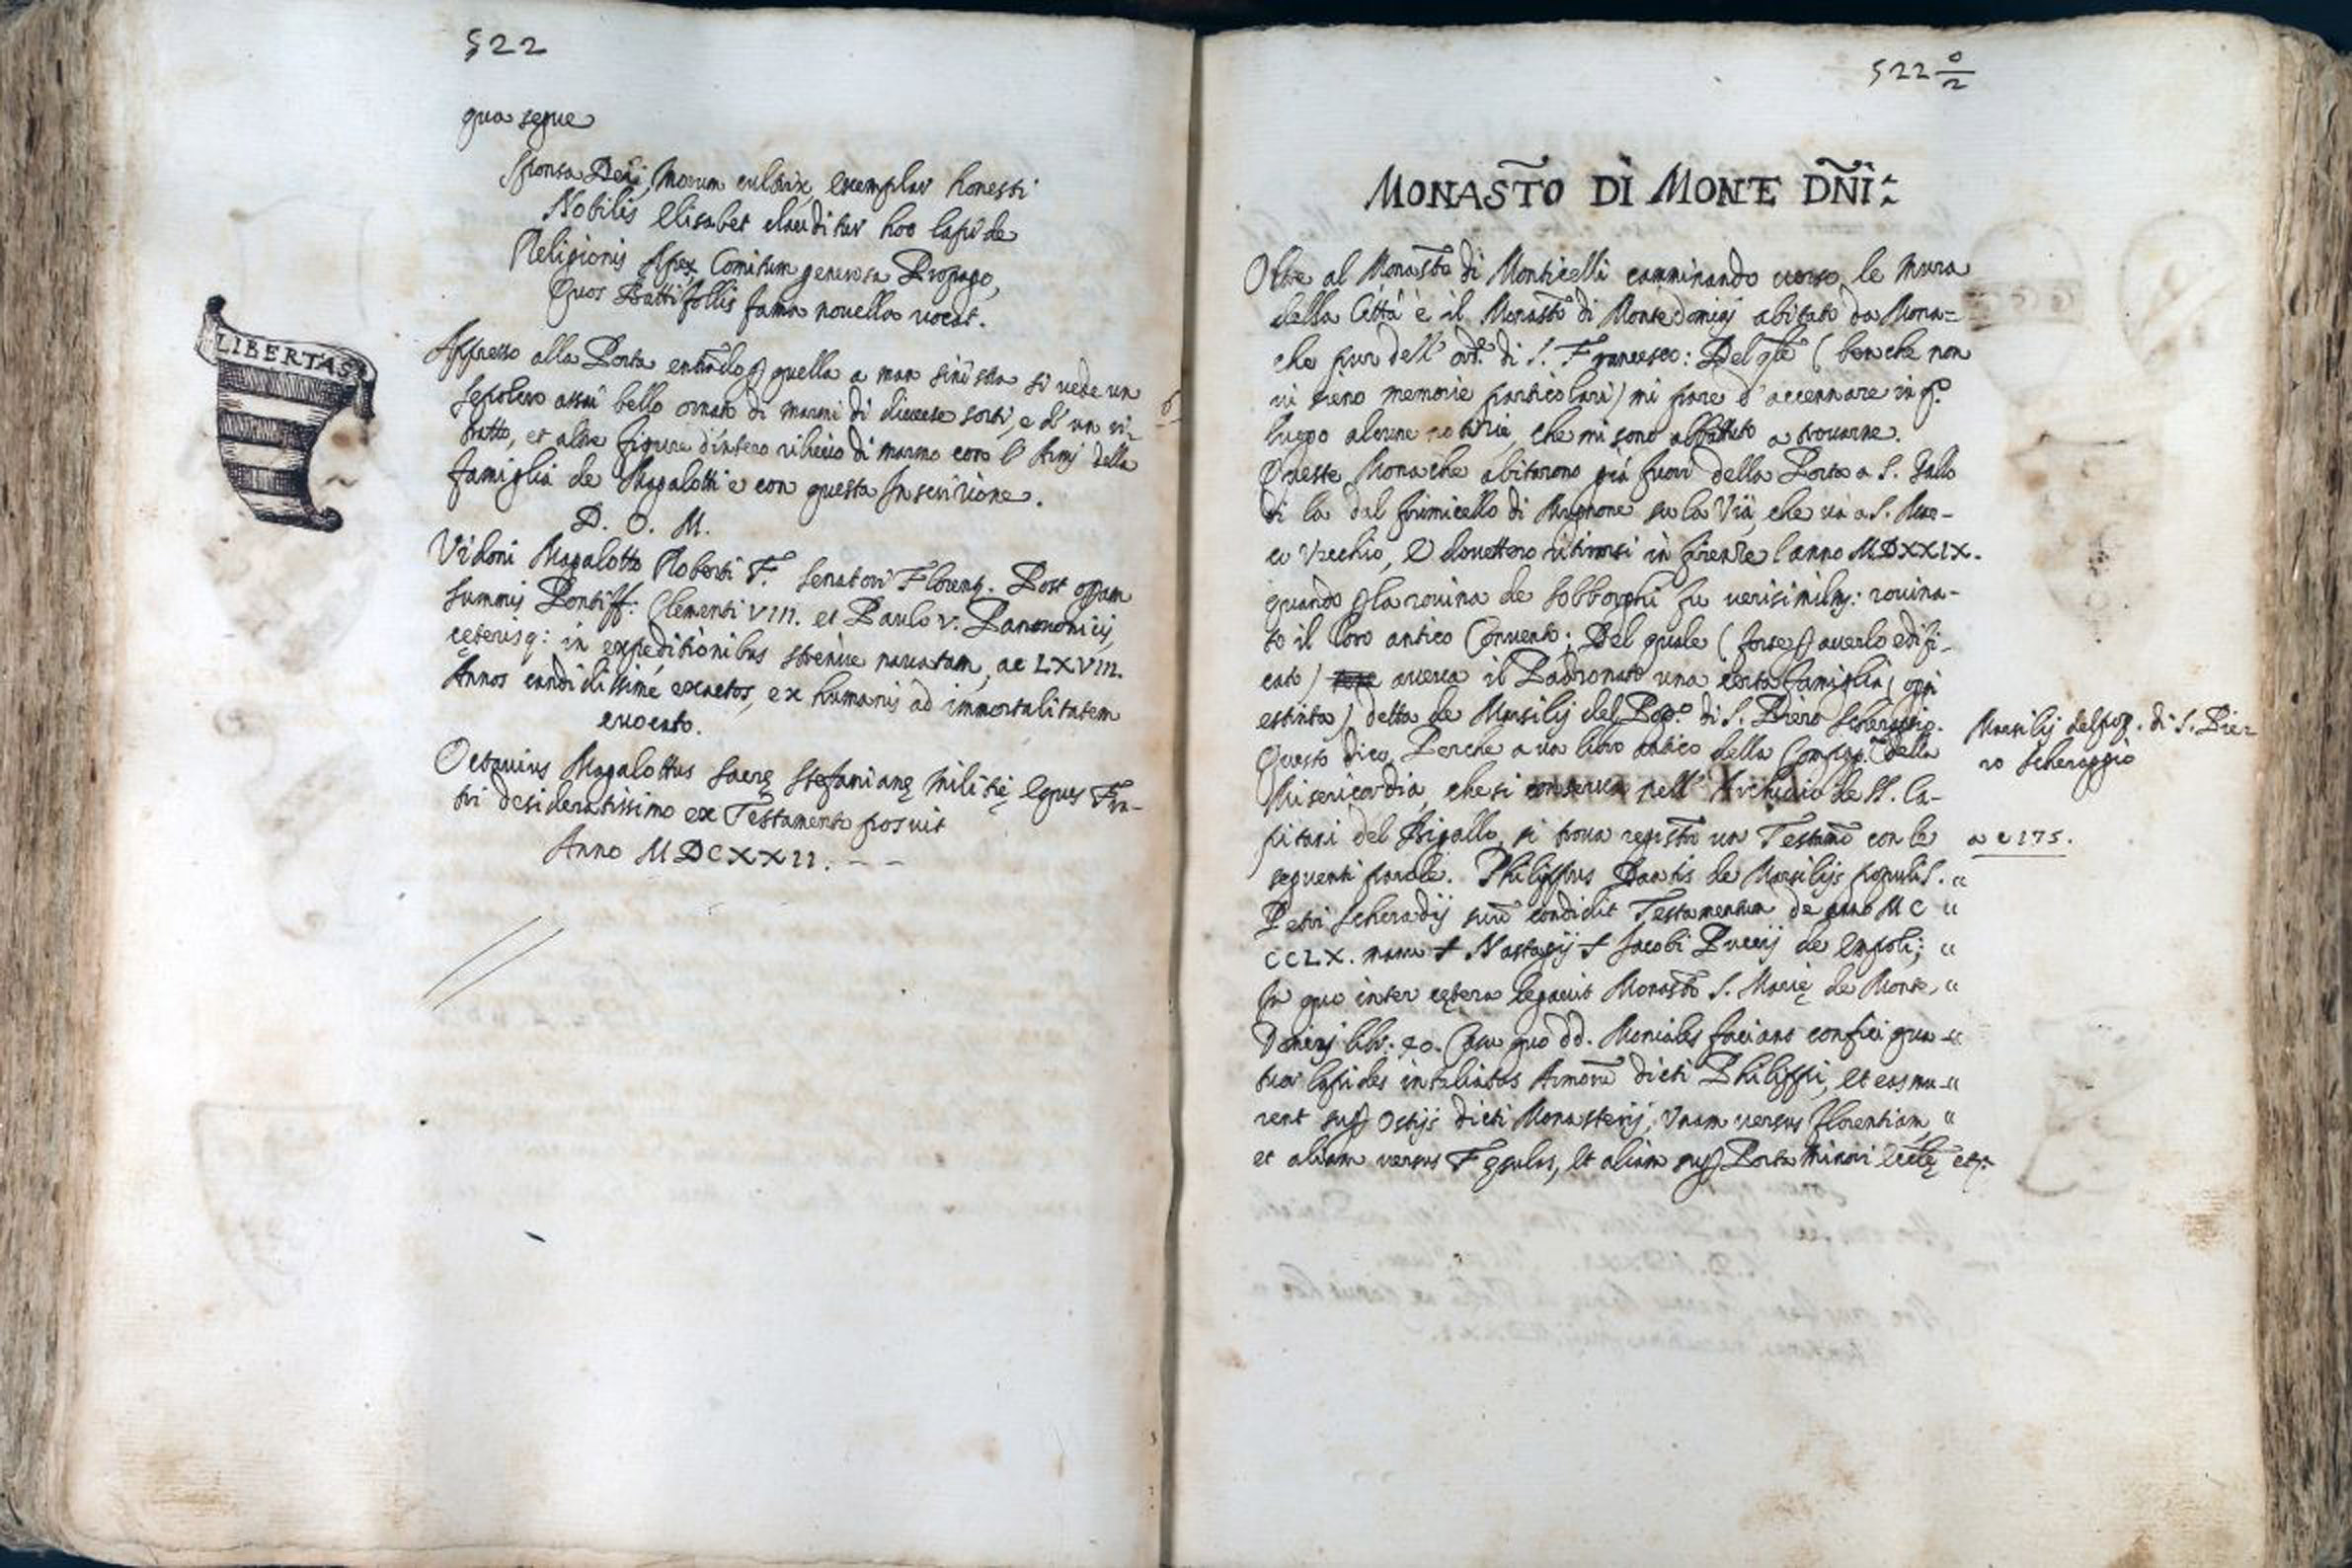 522
qua segue
Sponsa Dei, Morum cultrix, exemplar honesti
Nobilis Elisabet clauditur hoc lapide
Religionis Apex, Comitum generosa Propago,
Quos Battifollis fama novella vocat.
LIBERTAS
Appresso alla Porta entrando p quella a man sinistra si vede un
sepolcro assai bello ornato di marmi di diverse sorti, e d'un ri-
tratto, et altre figure d'intero rilievo di marmo con l'Armj della
famiglia de Magalotti e con questa Inscrizione.
D. O. M.
Vidoni Magalotto Roberti F. Senatori Florent. Post opam
summis Pontiff: Clementi VIII. et Paulo V. Pannonicis,
cęterisq: in expeditionibus strenue navatam, ac LXVIII.
Annos candidissimé exactos, ex humanis ad immortalitatem
evocato.
Octavius Magalottus Sacrę Stefanianę Militię Eques Fra-
tri desideratissimo ex Testamento posuit
Anno MDCXXII. - -
522 0/2
MONASTO DI MONTE DÑI:
Oltre al Monasto di Monticelli camminando verso le mura
della Città è il Monasto di Montedominj abitato da Mona-
che pur dell' ord. di S. Francesco: Del qle (benche non
vi sieno memorie particolari) mi pare d'accennare in qo
luogo alcune notizie, che mi sono abbattuto a trovarne.
Queste Monache abitorono già fuori della Porta a S. Gallo
di la dal fiumicello di Mugnone su la Via, che va a S. Mar-
co Vecchio, e dovettero ritirarsi in firenze l'anno MDXXIX.
quando p la rovina de sobborghi fu verisimilmj: rovina-
to il loro antico Convento; Del quale (forse p averlo edifi-
cato) aveva il Padronato una certa famiglia (oggi
estinta) detta de Marsilij del Popo. di S. Piero Scheraggio.
Questo dico, Perche a un libro antico della Compag. della
Misericordia, che si conserva nell' Archivio de SS. Ca-
pitani del Bigallo, si trova registro un Testamo con le
seguenti parole. Philippus Dantis de Marsilijs populi S. "
Petri Scheradij suū condidit Testamentum de anno MC "
CCLX. manu + Nastagij + Jacobi Puccij de Empoli; "
In quo inter cętera legavit Monasto S. Marię de Monte, "
Dominj libr: 40. Cum quo dd. Moniales faciant confici qua- "
tuor lapides intaliatos Armorū dicti Philippi, et eas mu- "
rent sup Ostijs dicti Monasterij, Unam versus Florentiam, "
et aliam versus Fęsulas, et aliam sup Porta minori Ecclę etc:
Marsilij del pop. di S. Pie-
ro Scheraggio
a c 175.